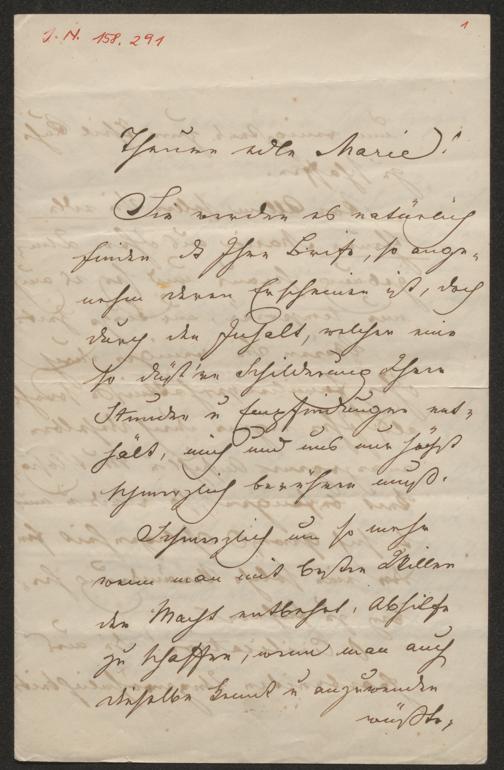 J. N. 158.291
1
Theure edle Marie!
Sie werden es natürlich
finden dß Ihre Briefe, so ange-
nehm deren Erscheinen ist, doch
durch den Inhalt, welcher eine
so düst're Schilderung Ihrer
Stunden u Empfindungen ent-
hält, mich und uns nur höchst
schmerzlich berühren muß.
Schmerzlich um so mehr
wenn man mit besten Willen
der Macht entbehrt, Abhilfe
zu schaffen, wenn man auch
dieselbe kennt u anzuwenden
wüßte,